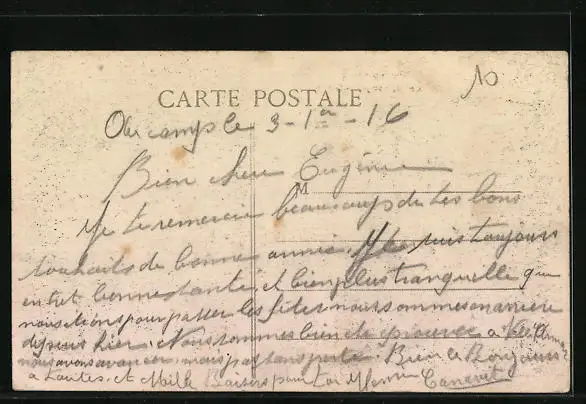 10
CARTE POSTALE
Au camp le 3 - 1er - 16
Bien cher Eugénie
M
Je te remercie beaucoup de tes bons
souhaits de bonne année. Je suis toujours
en bonne santé, et bien plus tranquille que
nous étions pour passer les fêtes nous sommes en arrière
depuis hier. Nous sommes bien éprouvée a
nous avons avancer, mais pas sans perte. Bien le Bonjour
a toutes. et Mille Baisers pour toi